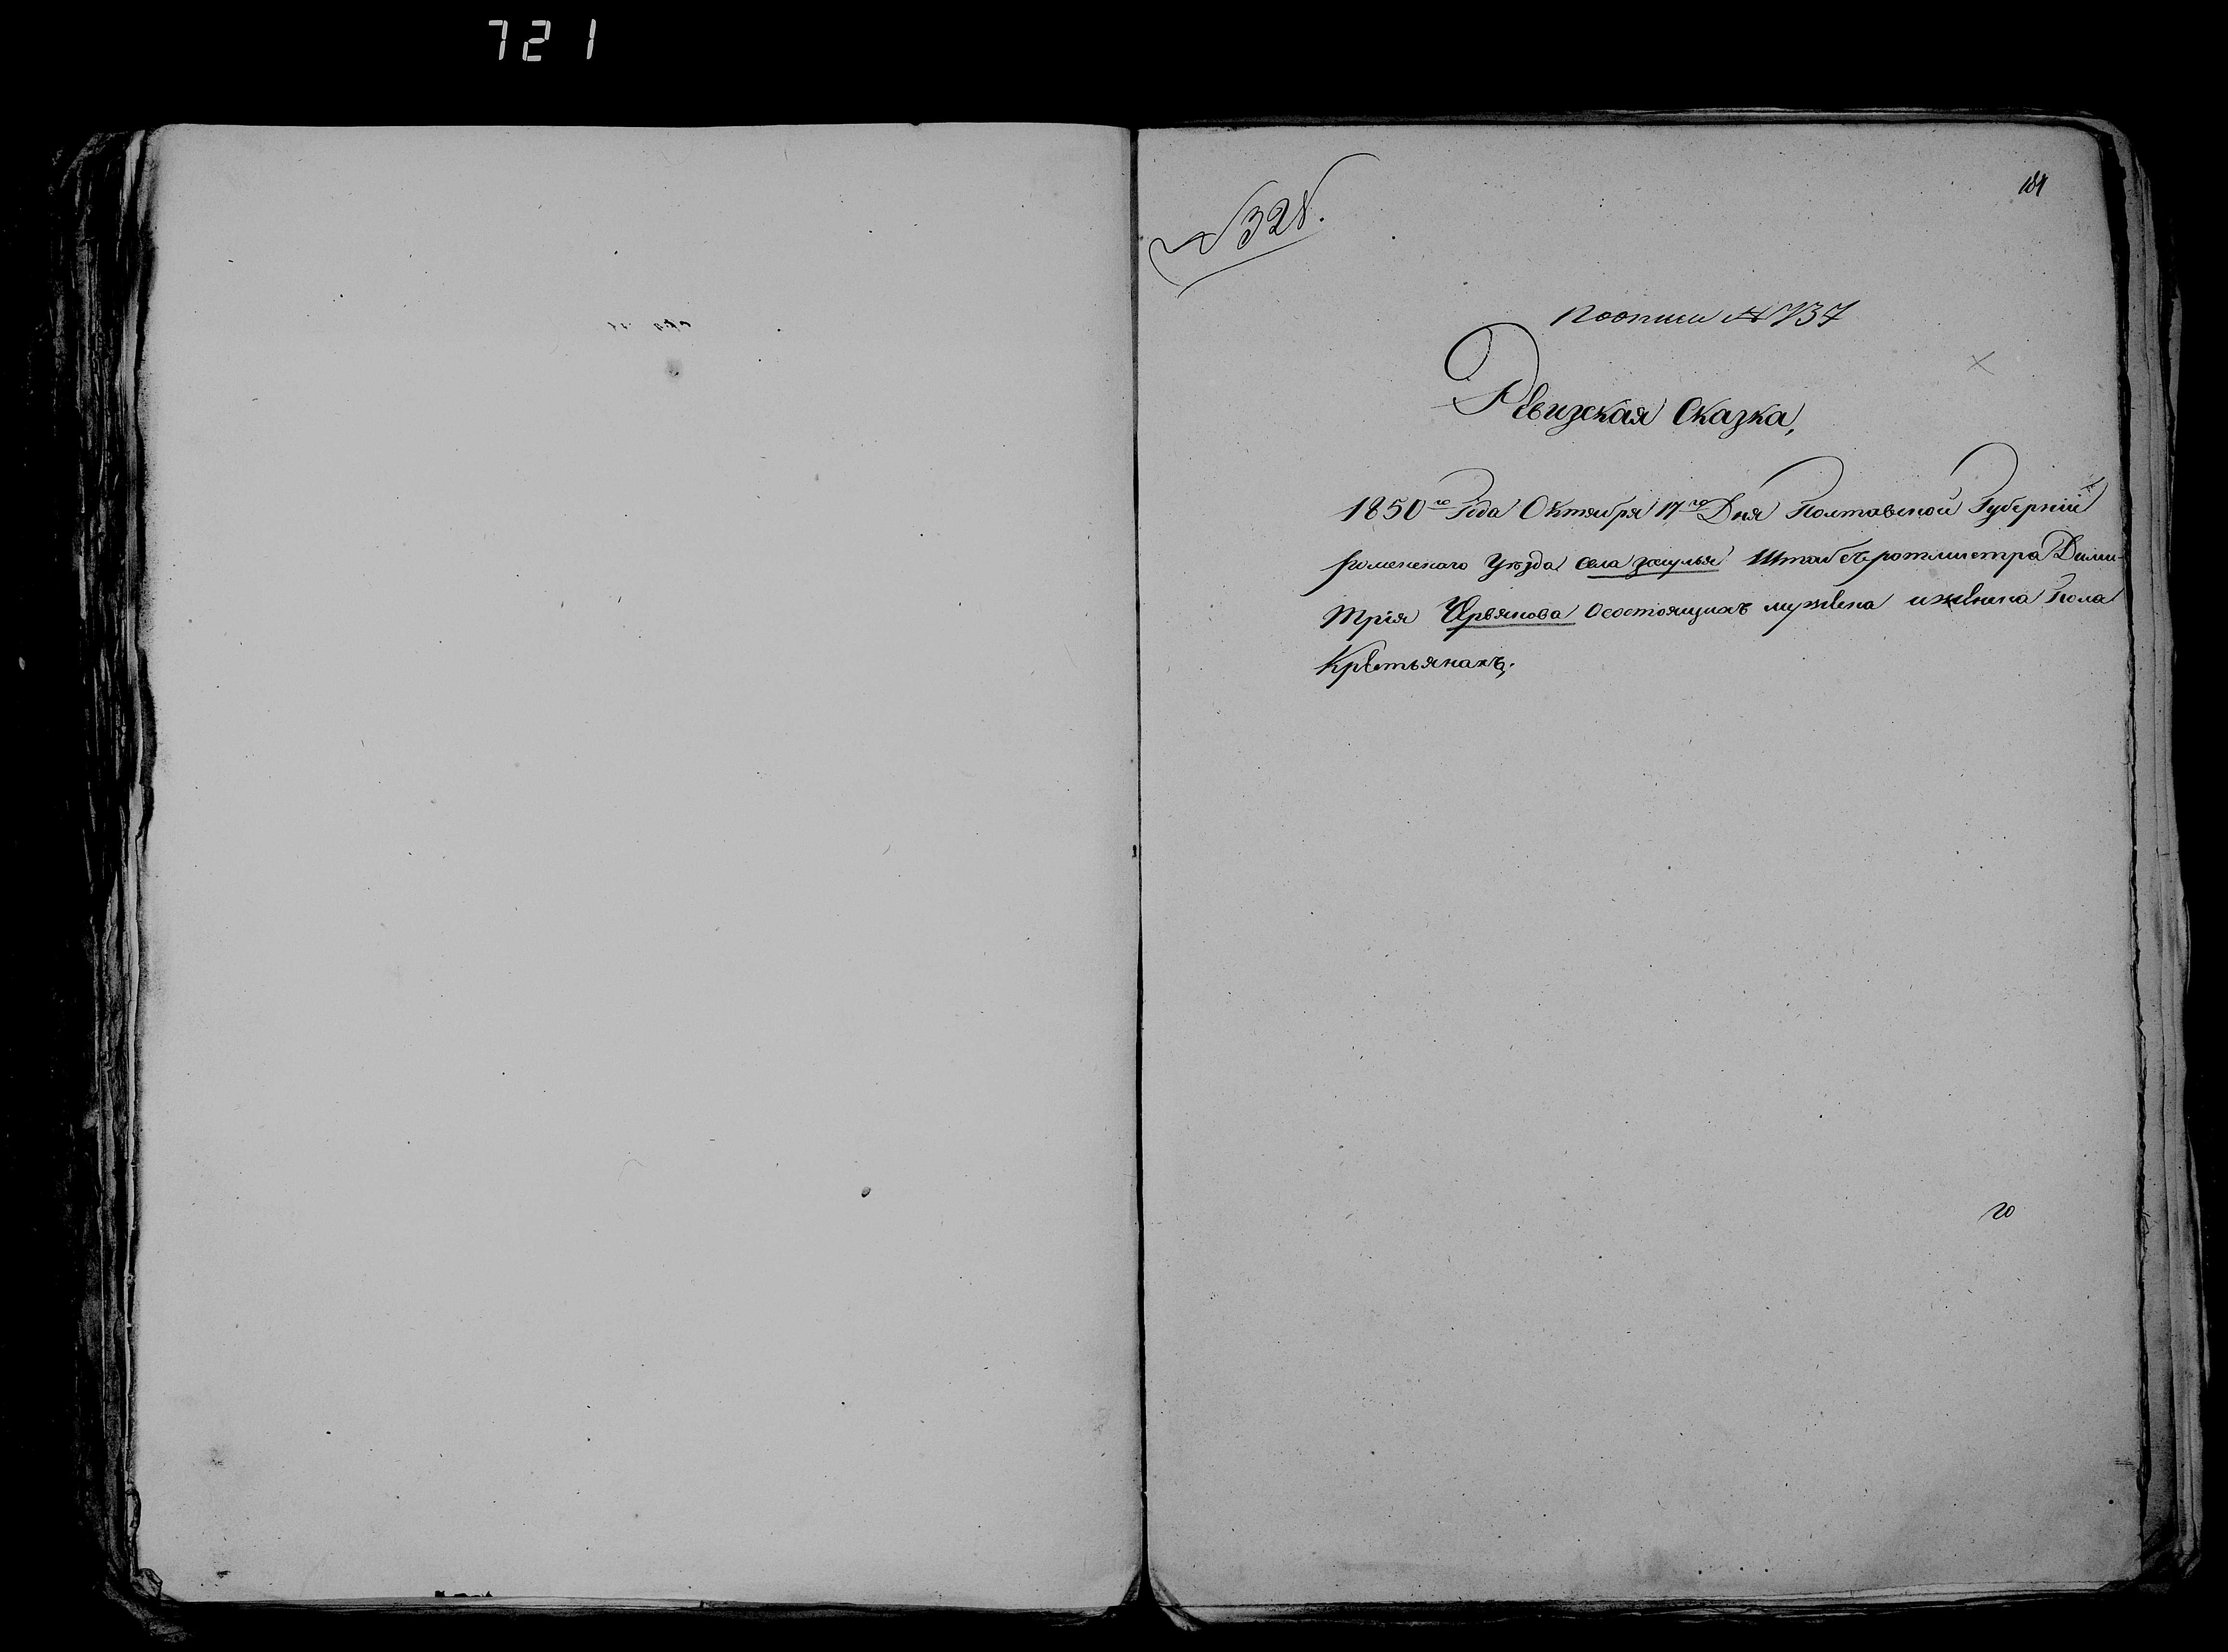 721
№ 328.
по описи № 737
Ревизская Сказка,
1850го Года Октября 17го Дня Полтавской Губернии
роменского Уезда села засулья Штабсъ ротмистра Дими-
трия Червякова о состоящихъ мужеска и женска Пола
Крестьянахъ;